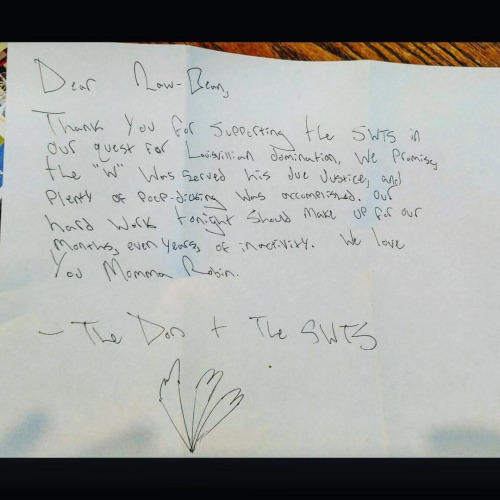 Dear Maw-Bean,
Thank you for supporting the SWTS in
our quest for Louisvillian domination. We promise,
the "W" was served his due justice, and
plenty of poop-dicking was accomplished. Our
hard work tonight should make up for our
months, even years, of inactivity. We love
you Momma Robin.
- The Don + The SWTS